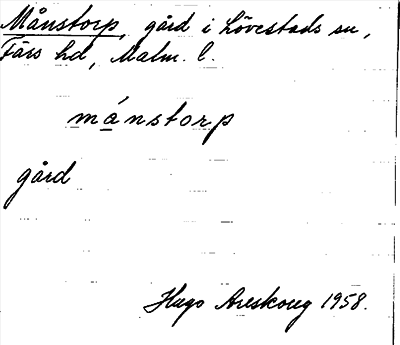 Månstorp, gård i Lövestads sn,
Färs hd, Malm. l.
mánstorp
gård
Hugo Areskoug 1958.